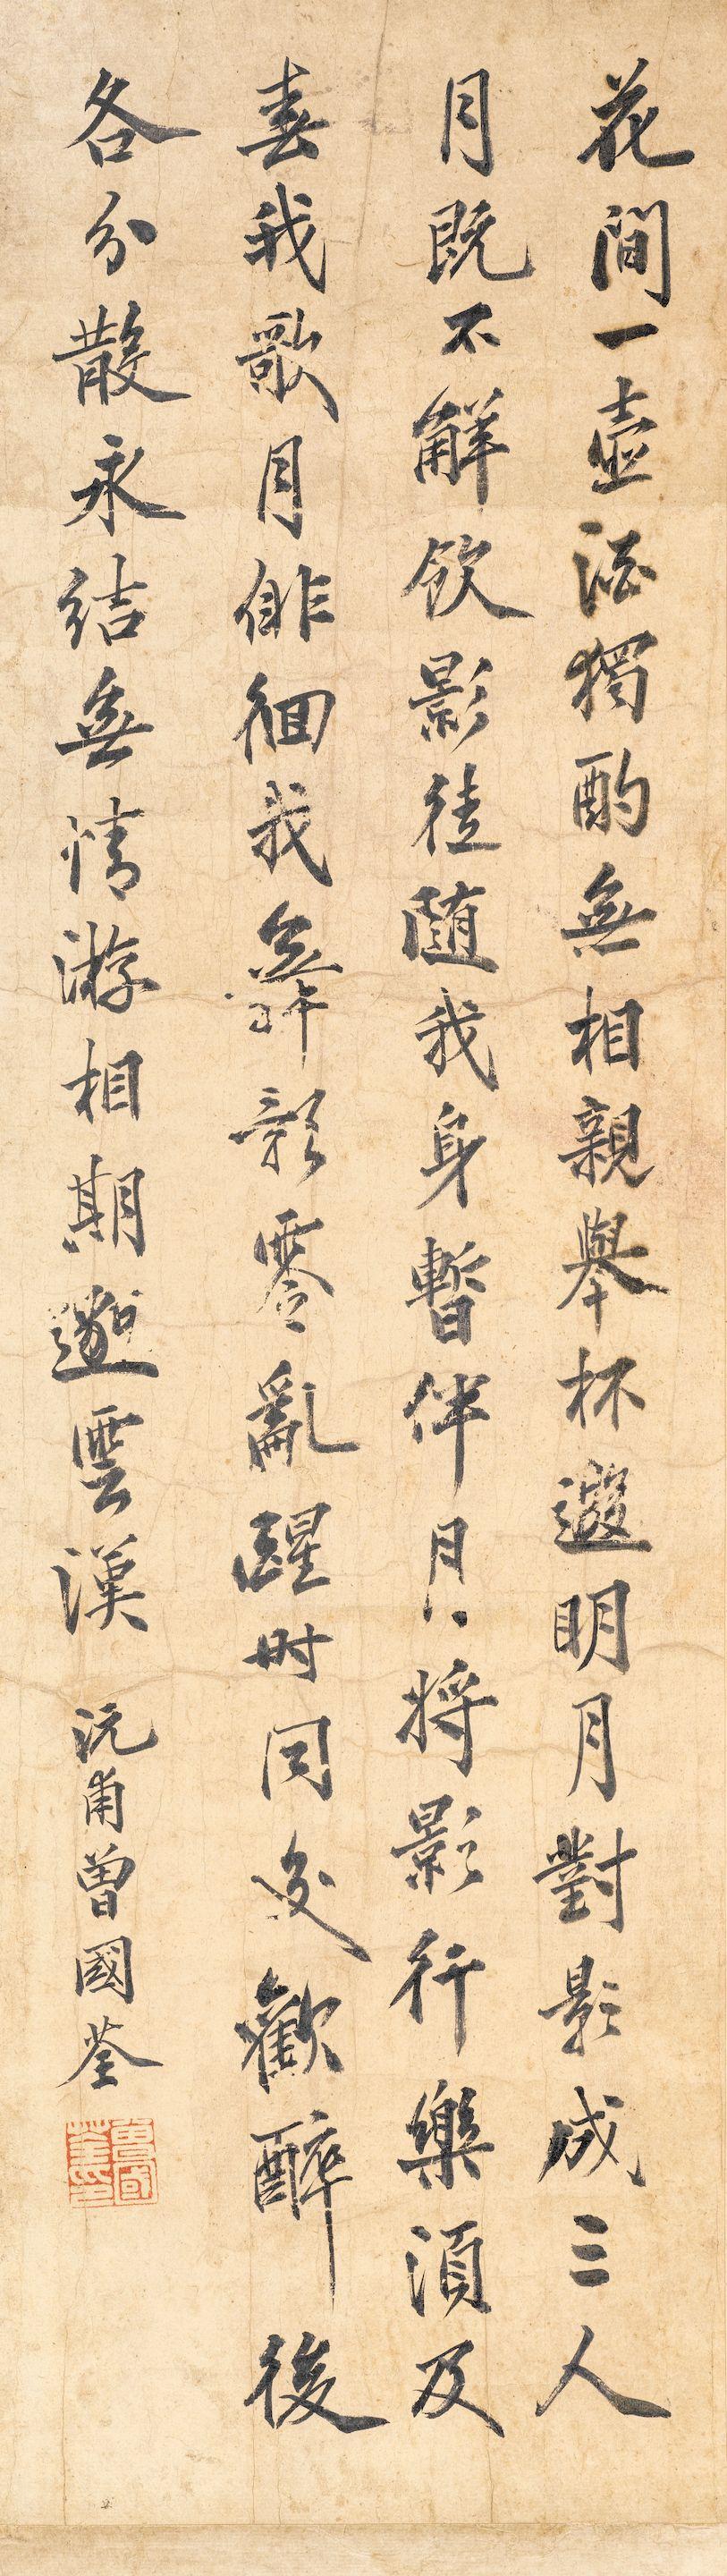 花間一壺酒獨酌無相親舉杯邀明月對影成三人
月既不解飲影徒隨我身暫伴月將影行樂須及
春我歌月徘徊我舞影零亂醒時同交歡醉後
各分散永結無情游相期邈雲漢
沅甫曾國荃
曾國荃印